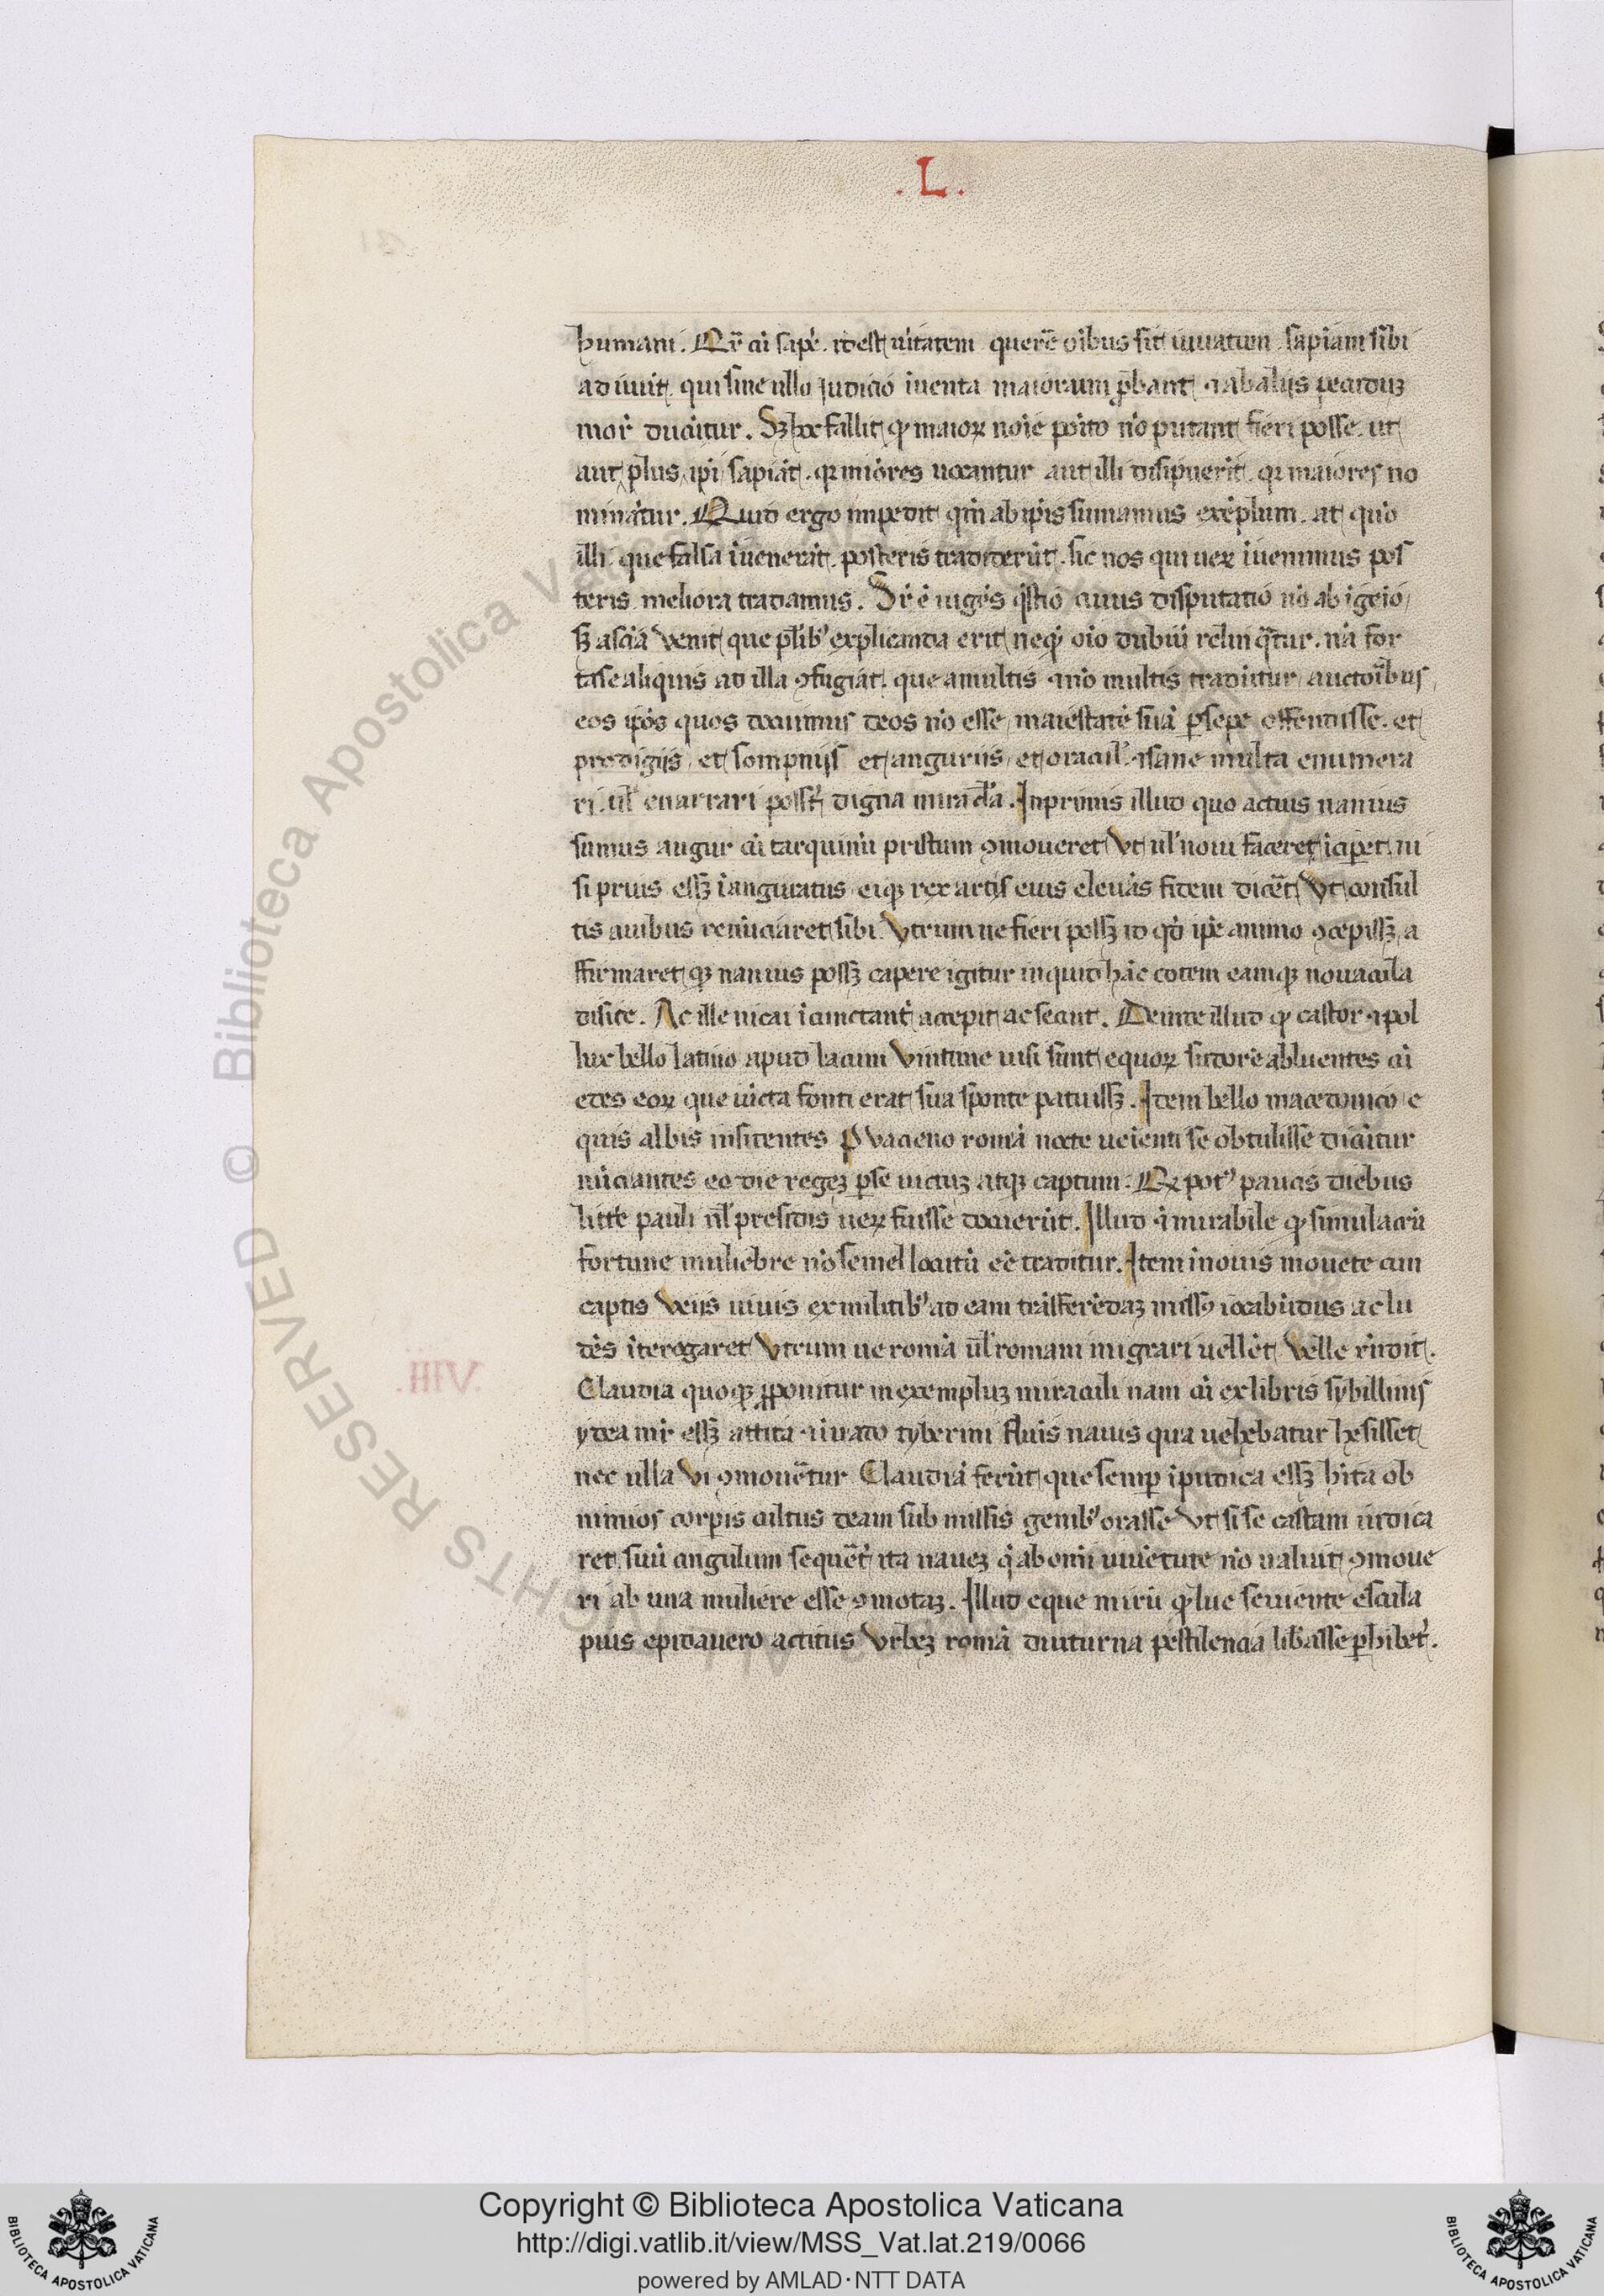 .L.
humani. Qr̄ cū sapẽ. id est ũitatem querẽ oĩbus sit inuatum sapiam sibi
adimit qui sine ullo iudicio iuenta maiorum ꝓbant ⁊ ab aliis pecuduz
mor̃ ducitur. Sꝫ hoc fallit ꝙ maioꝝ noĩe poĩto nõ putant fieri posse ut
aut plus ipĩ sapiãt qꝛ miores uocantur aut illi disipuerĩt qꝛ maiores no
minãtur. Quid ergo impedit qiñ ab ipĩs sumamus exẽplum at quõ
illi que falsa iuenerãt posteris tradiderũt sic nos qui ueꝝ iuenimus pos
teris meliora tradamus. Sr̃ ẽ ingẽs q̃stio cuius disputatio nõ ab igeio
sꝫ a sciã venit que plĩbꝰ explicanda erit neqꝫ oĩo dubiũ relinq̃tur. nã for
tasse aliquis ad illa ꝯfugiat que a multis ⁊ nõ multis traditur auctoĩbus
eos ipõs quos docuimus deos nõ esse maiestatẽ suã ꝑsepe ostendisse et
prodigiis et sompnijs et auguriis et oracul̃ ⁊ sane multa enumera
ri ul̃ enarrari posst̃ digna miracl̃a. Inprimis illud quo actius nauius
sumus augur cũ tarquiniũ priscum ꝯmoueret Vt nl̃ noui facere iciꝑet ni
si prius essꝫ iauguratus eiqꝫ rex artis eius eleuãs fidem dicẽt Vt consul
tis auibus renũciaret sibi Vtrum ne fieri possꝫ id qđ ipẽ animo ꝯcepissꝫ a
ffirmaret qꝫ nauius possꝫ capere igitur inquid hãc cotem eamqꝫ nouacila
disice. Ac ille nicai icunctant̃ accepit ac secuit. Deinde illud ꝙ castor ⁊ pol
lux bello latino apud lacum Viutune uisi sunt equoꝝ sudorẽ abluentes cũ
edes eoꝝ que iũcta fonti erat sua sponte patuissꝫ. Item bello macedonico e
quis albis insidentes P vacieno romã nocte ueienti se obtulisse dicitur
nũciantes eo die regeꝫ ꝑse uictuꝫ atqꝫ captum. Qđ potꝰ paucis diebus
litt̃e pauli ũl presidiis ueꝝ fuisse docuerũt. Illud ⁊ mirabile ꝙ simulacrũ
fortune muliebre nõ semel locutũ eẽ traditur. Item inouis mouete cum
captis Veiis unus ex militibꝰ ad eam trãsferẽdaꝫ missꝰ iocabũdus ac lu
dẽs iterogaret Vtrum ne romã ũl romam migrari uellet Velle rñdit.
Claudia quoqꝫ ꝓponitur in exempluꝫ miraculi nam cũ ex libris sybillinis
ydea mr̃ essꝫ attita ⁊ ĩ uado tyberini fluis nauis qua uehebatur hesisset
nec ulla Vi ꝯmouẽtur Claudiã ferũt que semꝑ ipudica essꝫ hĩta ob
nimios corpis cultus deam submissis genibꝰ orasse Vt si se castam iudica
ret suũ cingulum sequẽt̃ ita naueꝫ q̃ ab omĩ iuuẽtute nõ ualuit ꝯmoue
ri ab una muliere esse ꝯmotaꝫ. Illud eque mirũ ꝙ lue seuiente escula
pius epidauero accitus Vrbeꝫ romã diuturna pestilencia libasse ꝑhibet̃.
Copyright © Biblioteca Apostolica Vaticana
http://digi.vatlib.it/view/MSS_Vat.lat.219/0066
powered by AMLAD·NTT DATA
BIBLIOTECA APOSTOLICA VATICANA
BIBLIOTECA APOSTOLICA VATICANA